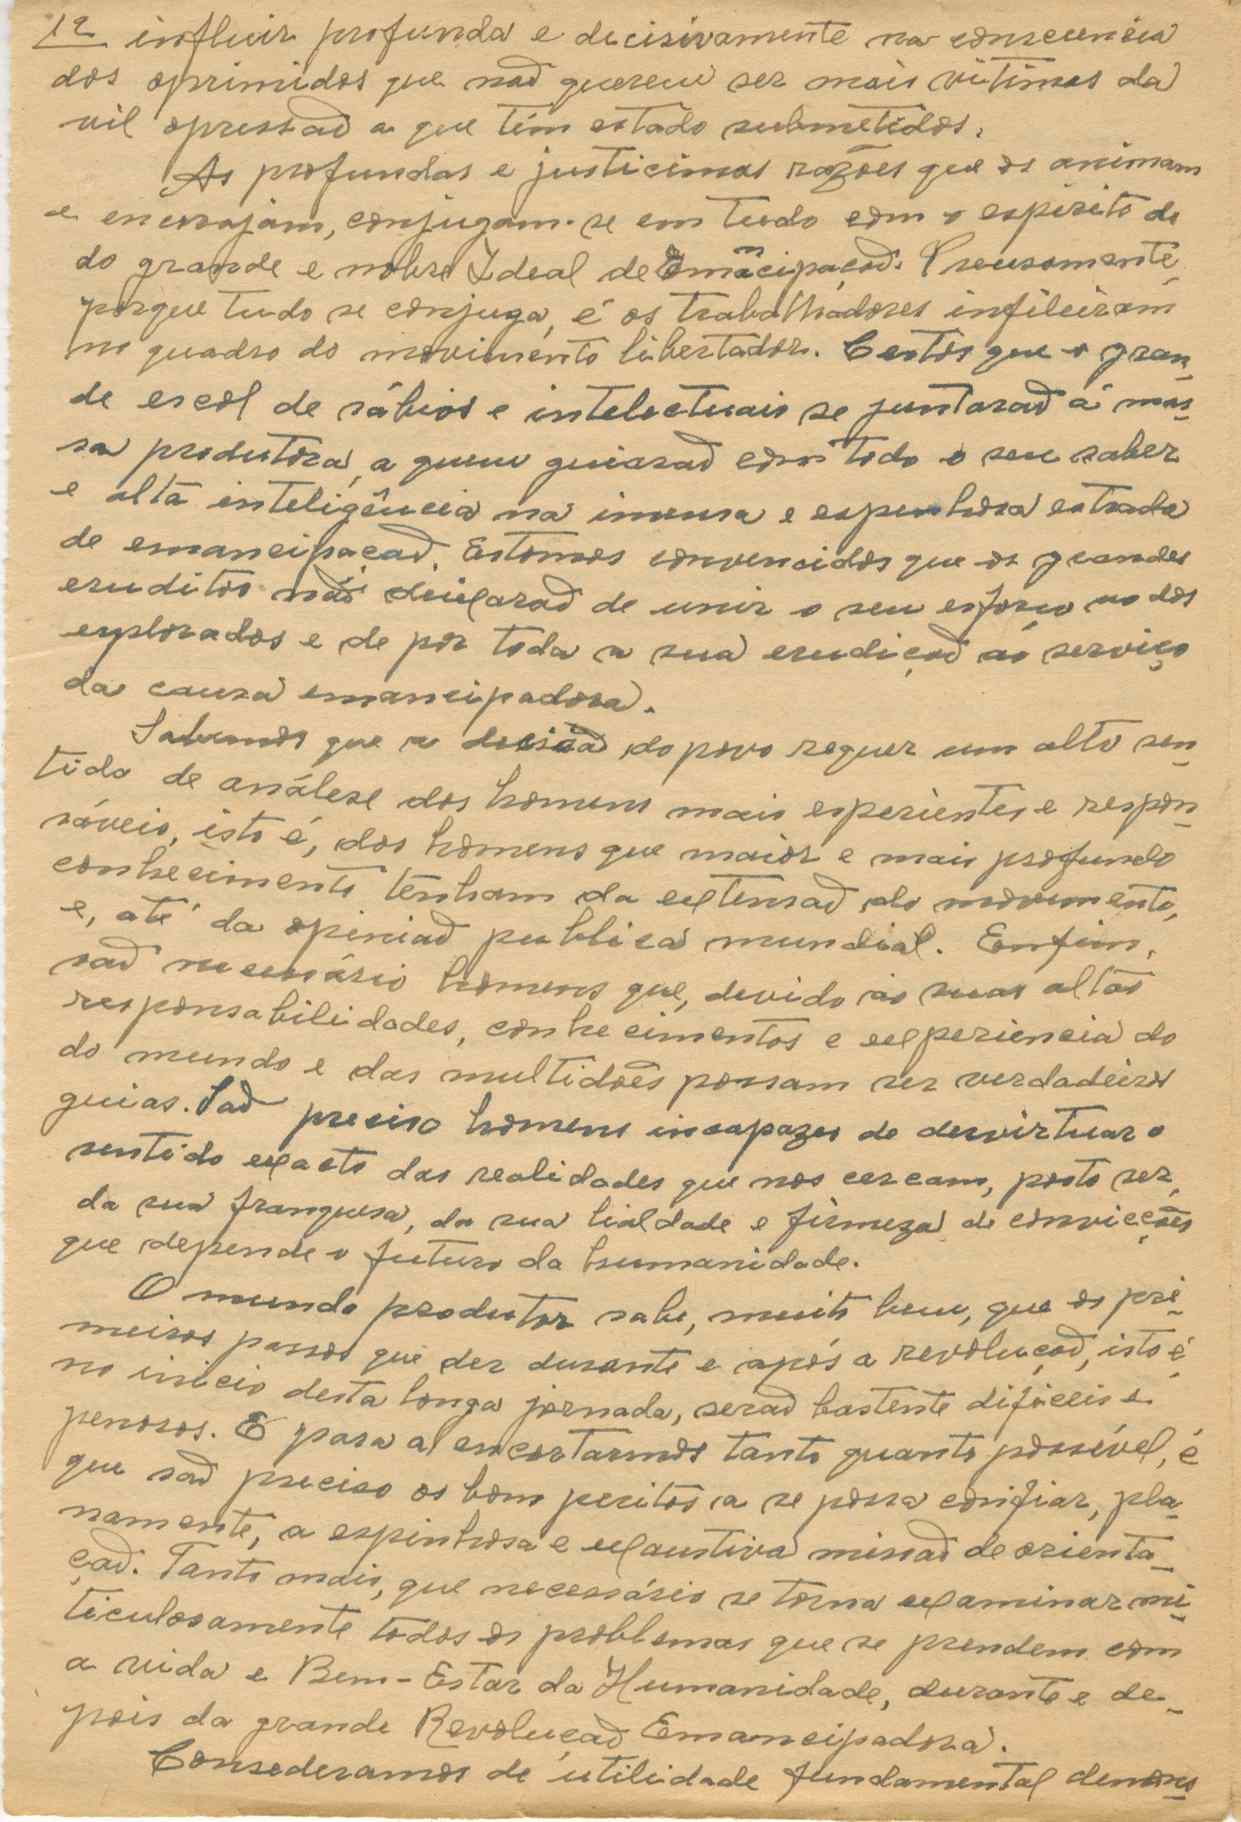 12 influir profunda e decisivamente na consciencia
dos oprimidos que não querem ser mais vitimas da
vil opressão a que têm estado submetidos.
As profundas e justicimas razões que os animam
e encorajam, conjugam-se em tudo com o espirito do
do grande e nobre Ideal de Emâncipação. Precisamente
porque tudo se conjuga, é os trabalhadores infileiram
no quadro do movimento libertador. Certos que o gran-
de escol de sábios e intelectuais se juntarão á mas-
sa produtora, a quem guiarão com todo o seu saber
e alta inteligência na imensa e espinhosa estrada
de emancipação. Estamos convencidos que os grandes
eruditos não deixarão de unir o seu esforço ao dos
explorados e de por toda a sua erudição ao serviço
da causa emancipadora.
Sabemos que a decisão do povo requer um alto sen-
tido de análese dos homens mais esperientes e respon-
sáveis, isto é, dos homens que maior e mais profundo
conhecimento tenham da extensão do movimento,
e, até da opinião publica mundial. Enfim,
são necessário homens que, devido ás suas altas
responsabilidades, conhecimentos e experiencia do
do mundo e das multidões possam ser verdadeiros
guias. São preciso homens incapazes de desvirtuar o
sentido exacto das realidades que nos cercam, posto ser,
da sua franquesa, da sua lialdade e firmeza de convicções
que depende o futuro da humanidade.
O mundo produtor sabe, muito bem, que os pri-
meiros passos que der durante e após a revolução, isto é
no inicio desta longa jornada, serão bastente dificeis e
penosos. E para a encortarmos tanto quanto possível, é
que são preciso os bons peritos a se possa confiar, pla-
namente, a espinhosa e exaustiva missão de orienta-
ção. Tanto mais, que necessário se torna examinar mi-
ticulosamente todos os problemas que se prendem com
a vida e Bem-Estar da Humanidade, durante e de-
pois da grande Revolução Emancipadora.
Consederamos de utilidade fundamental demons-